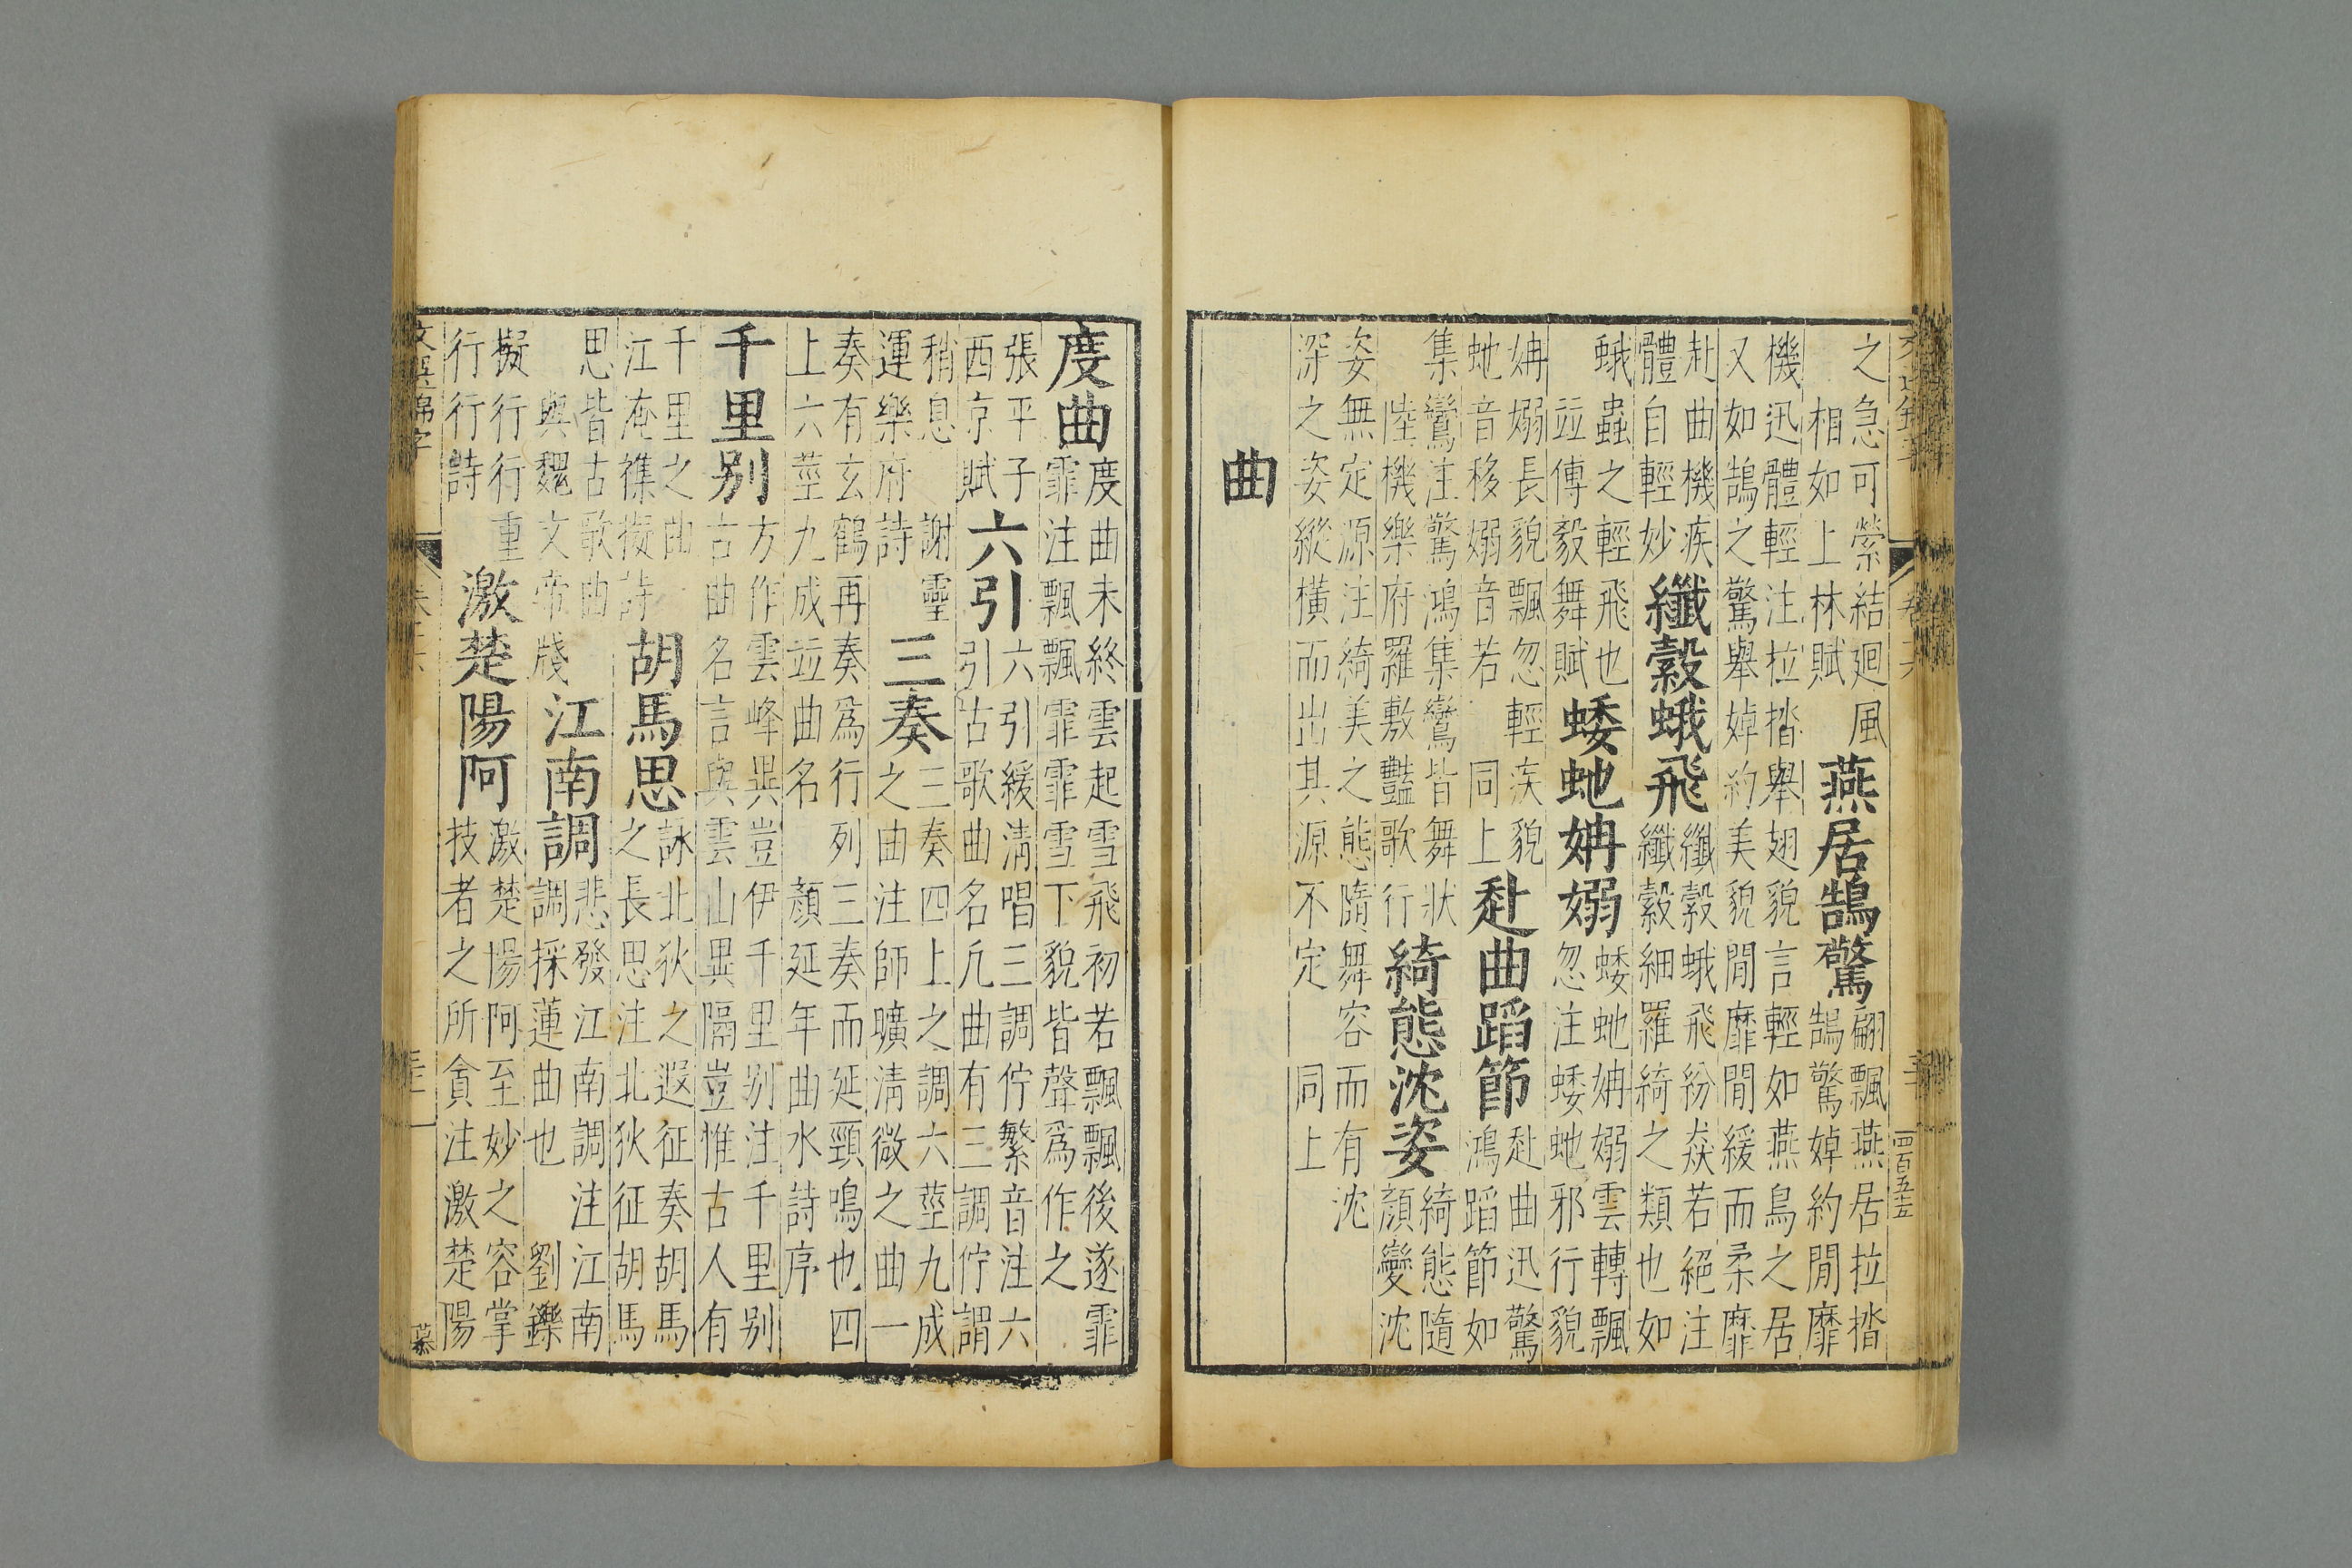 之急可縈結廻風
相如上林賦
燕居鵠驚
翩飄燕居拉揩
鵠驚婥約閒靡
機迅體輕注拉揩舉翅貌言輕如燕鳥之居
又如鵠之驚舉婥約美貌閒靡閒緩而柔靡
赴曲機疾
體自輕妙
纖縠蛾飛
纖縠蛾飛紛猋若絕注
纖縠細羅綺之類也如
蛾蟲之輕飛也
竝傳毅舞賦
蜲虵姌嫋
蜲虵姌嫋雲轉飄
忽注蜲虵邪行貌
姌嫋長貌飄忽輕疾貌
虵音移嫋音若 同上
赴曲蹈節
赴曲迅驚
鴻蹈節如
集鸞注驚鴻集鸞皆舞狀
陸機樂府羅敷豔歌行
綺態沈姿
綺態隨
顏變沈
姿無定源注綺美之態隨舞容而有沈
深之姿縱橫而出其源不定 同上
曲
四百五五
度曲
度曲未終雲起雪飛初若飄飄後遂霏
霏注飄飄霏霏雪下貌皆聲爲作之
張平子
西京賦
六引
六引緩淸唱三調佇繁音注六
引古歌曲名凡曲有三調佇謂
稍息 謝靈
運樂府詩
三奏
三奏四上之調六莖九成
之曲注師曠淸微之曲一
奏有玄鶴再奏爲行列三奏而延頸鳴也四
上六莖九成竝曲名 顏延年曲水詩序
千里别
方作雲峰異豈伊千里别注千里别
古曲名言與雲山異隔豈惟古人有
千里之曲
江淹襍擬詩
胡馬思
詠北狄之遐征奏胡馬
之長思注北狄征胡馬
思皆古歌曲
與魏文帝牋
江南調
悲發江南調注江南
調採蓮曲也 劉鑠
擬行行重
行行詩
激楚陽阿
激楚揚阿至妙之容掌
技者之所貪注激楚陽
文選錦字